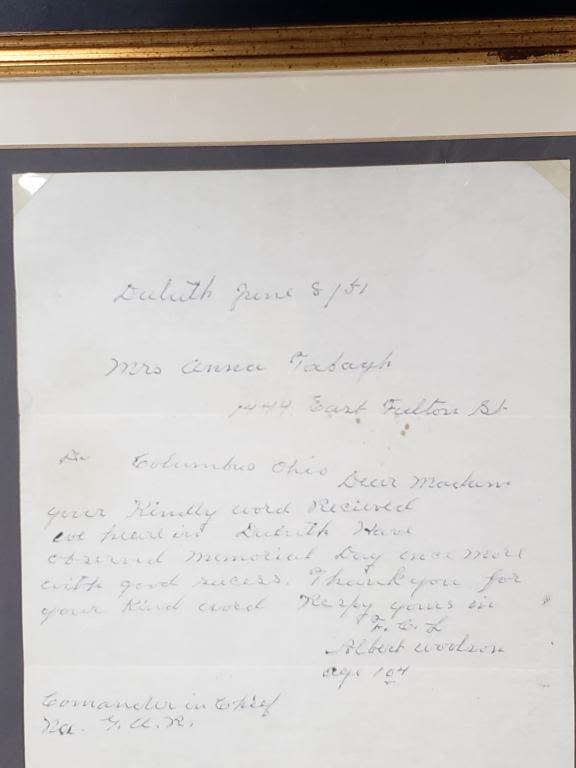 Duluth June 8/51
Mrs Anna Tabagh
1444 East Fulton St
Columbus Ohio Dear Madam
your Kindly word Recieved
we hear in Duluth Have
observed Memorial Day once more
with good sucess. Thank you for
your Kind word Respy yours in
F. C. L
Albert Woolson
age 104
Comander in Chief
Na. G. A. R.